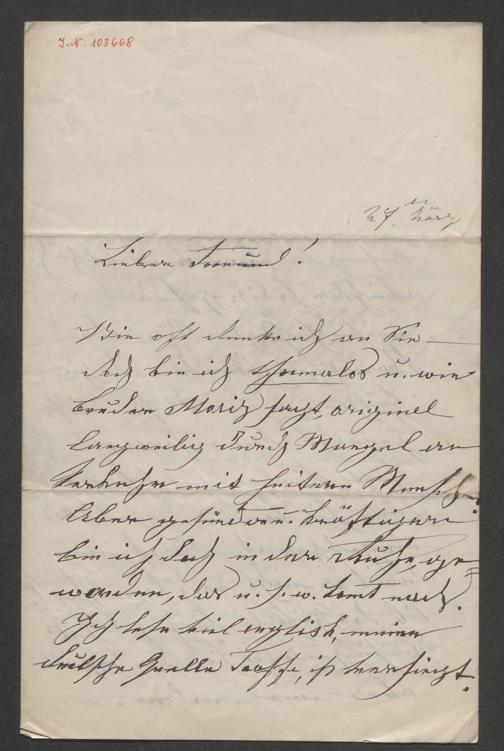 I.N. 103668
27. März
Lieber Freund!
Wie oft denke ich an Sie –
doch bin ich schmucklos u. wie
Bruder Moriz sagt, originel
langweilig durch Mangel an
Verkehr mit heitern Mensch.
Aber gesünder u. kräftiger
bin ich doch in der Ruhe ge=
worden, das u. s. w. komt nach.
Ich lese viel english, meine
deutsche Quelle, ist versiegt.